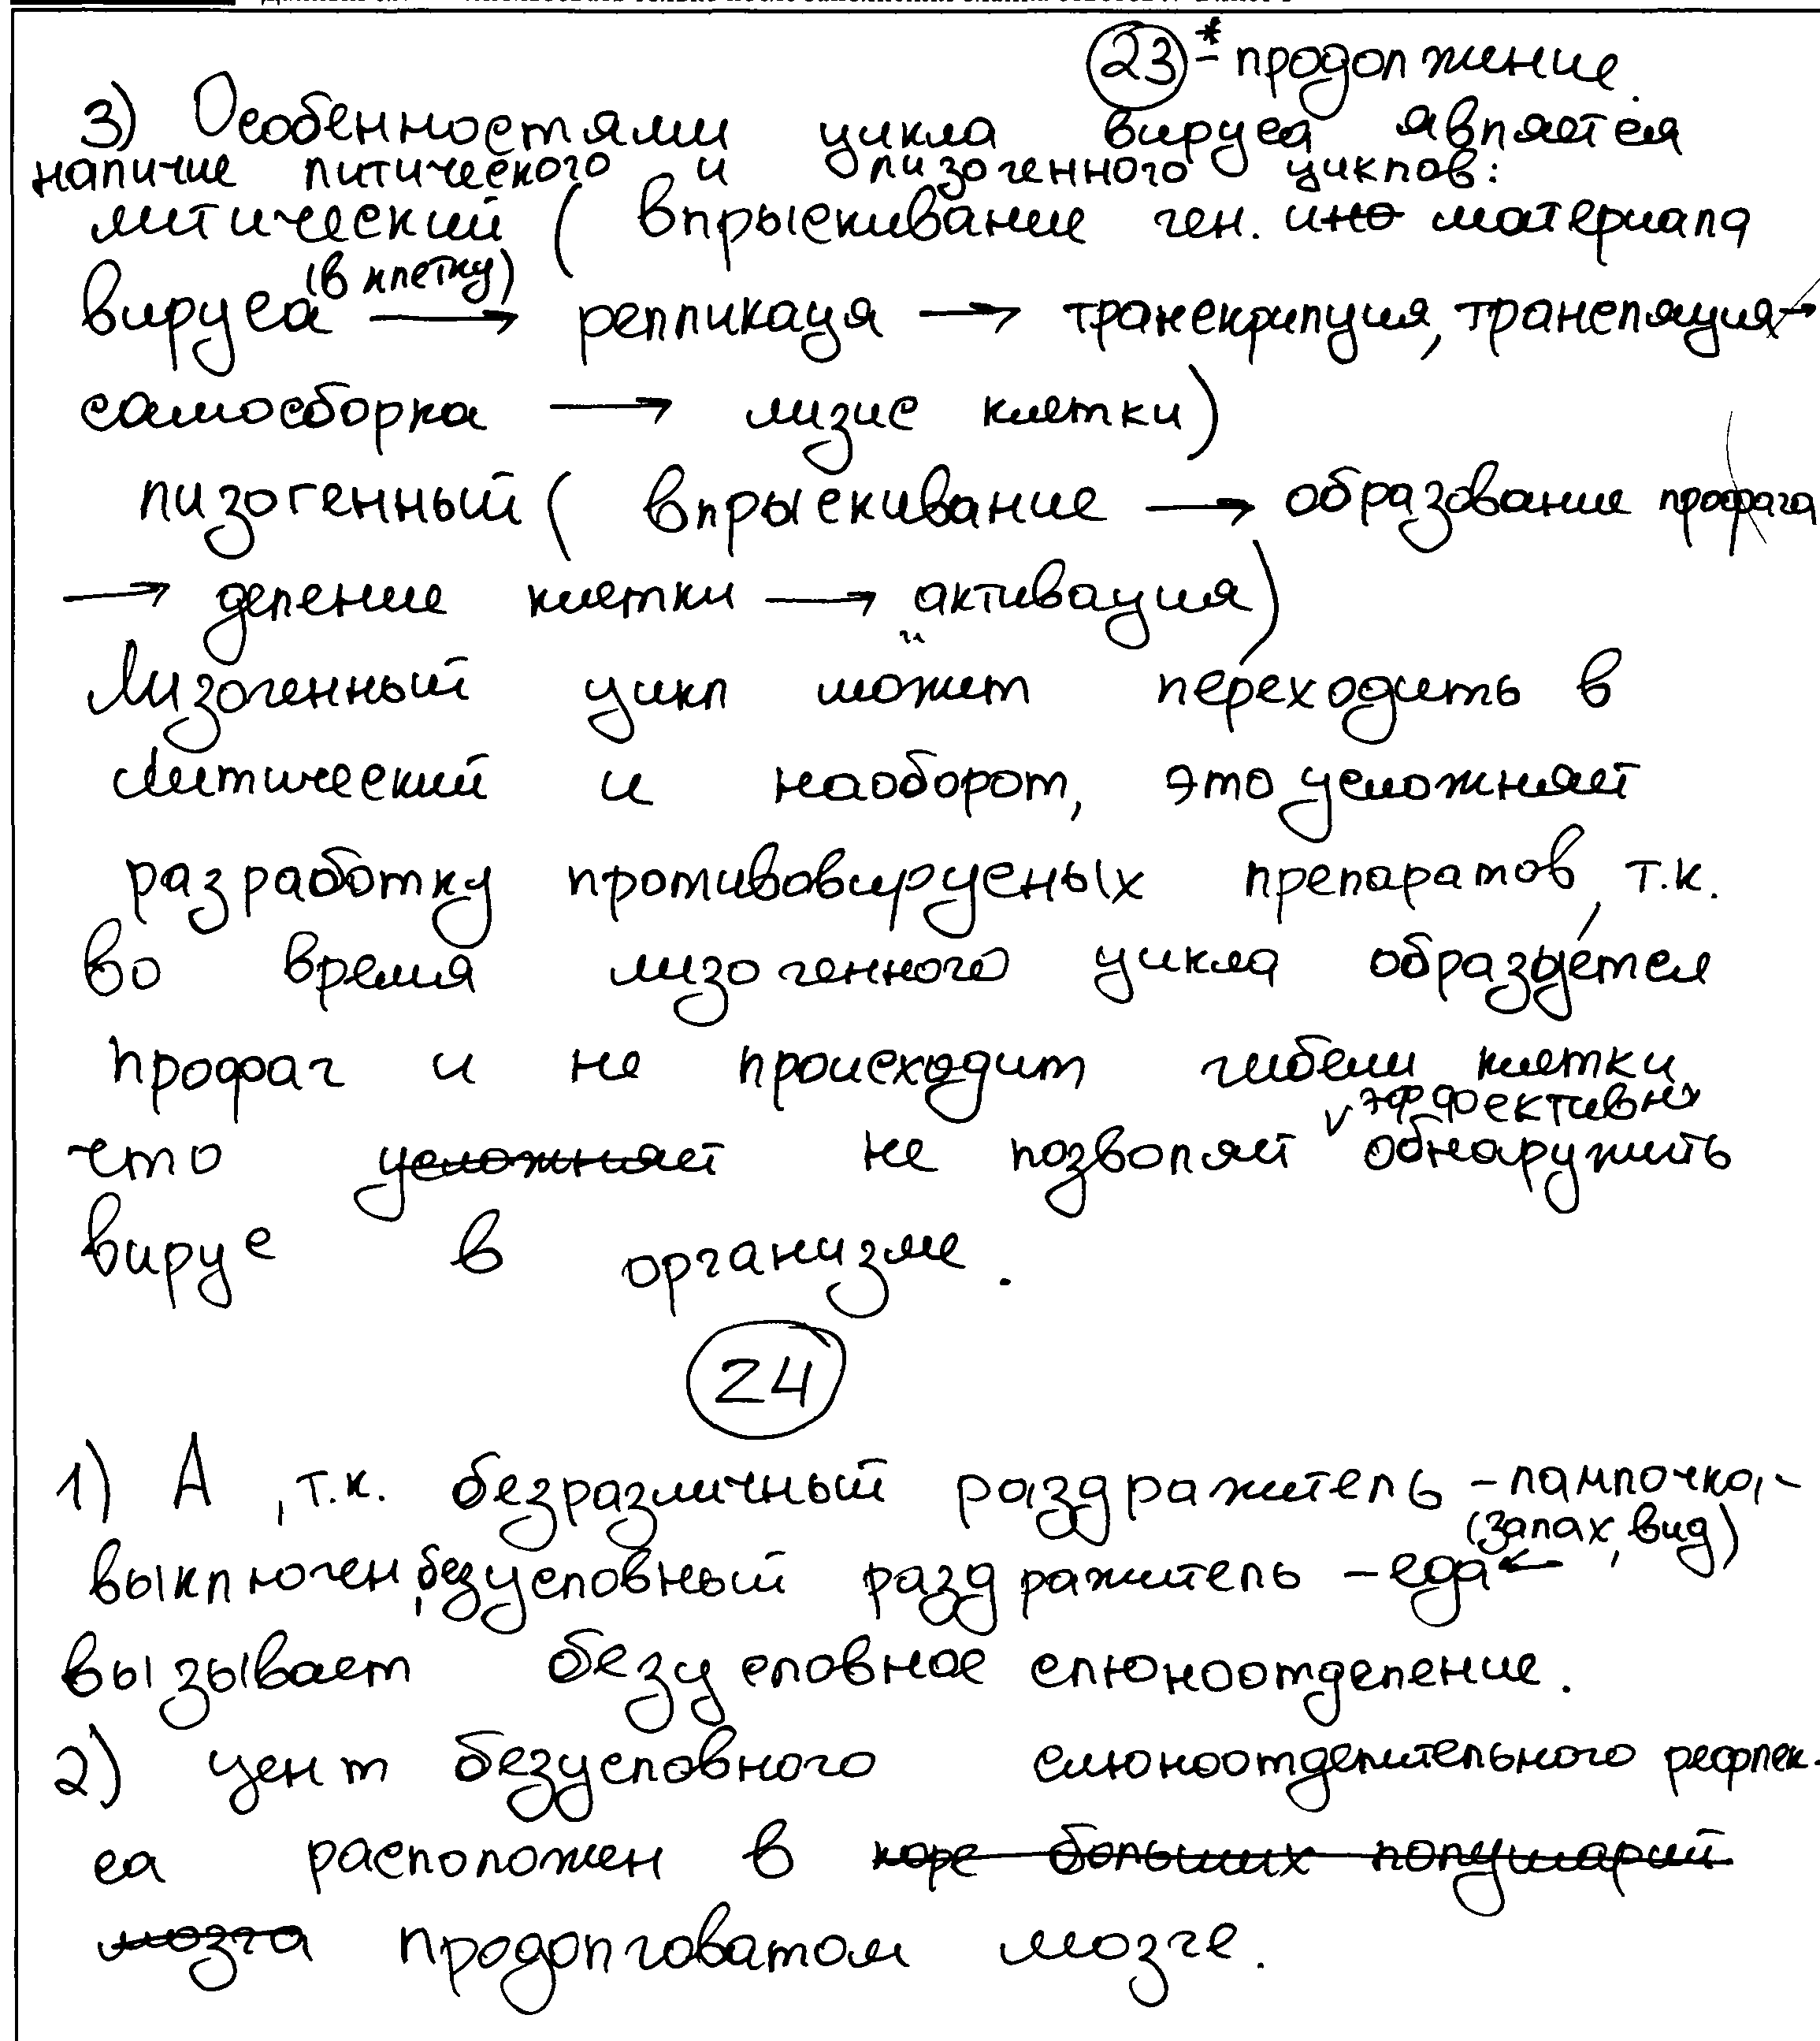 (23)* - продолжение.
3) Особенностями цикла вируса является
наличие литического и лизогенного циклов:
литический ( впрыскивание ген. материала
вируса (в клетку) → репликаця → транскрипция, трансляция →
самосборка → лизис клетки)
лизогенный ( впрыскивание → образование профага
→ деление клетки → активация)
Лизогенный цикл может переходить в
литический и наоборот, это усложняет
разработку противовирусных препаратов, т.к.
во время лизогенного цикла образуется
профаг и не происходит гибели клетки
что усложняет не позволяет эффективно обнаружить
вирус в организме.
24
1) А, т.к. безразличный раздражитель - лампочка, -
выключен, безусловный раздражитель - еда ← (запах, вид)
вызывает безусловное слюноотделение.
2) цент безусловного слюноотделительного рефлек-
са расположен в коре больших полушарий
мозга продолговатом мозге.